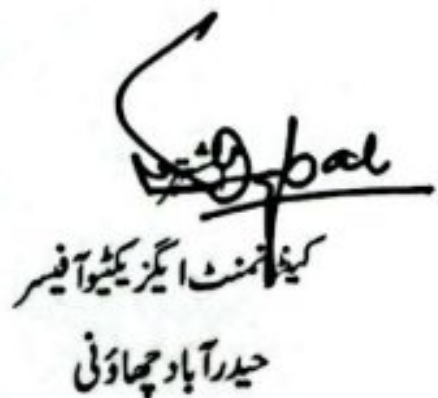 کینٹونمنٹ ایگزیکٹیو آفیسر
حیدرآباد چھاؤنی